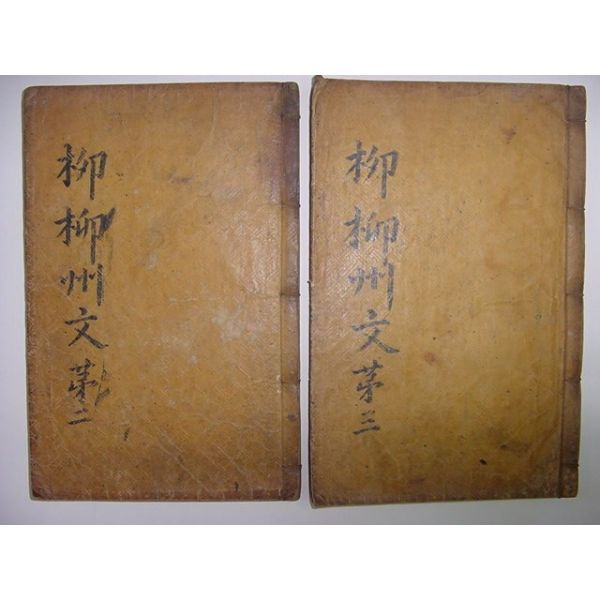 柳柳州文第二
柳柳州文第三